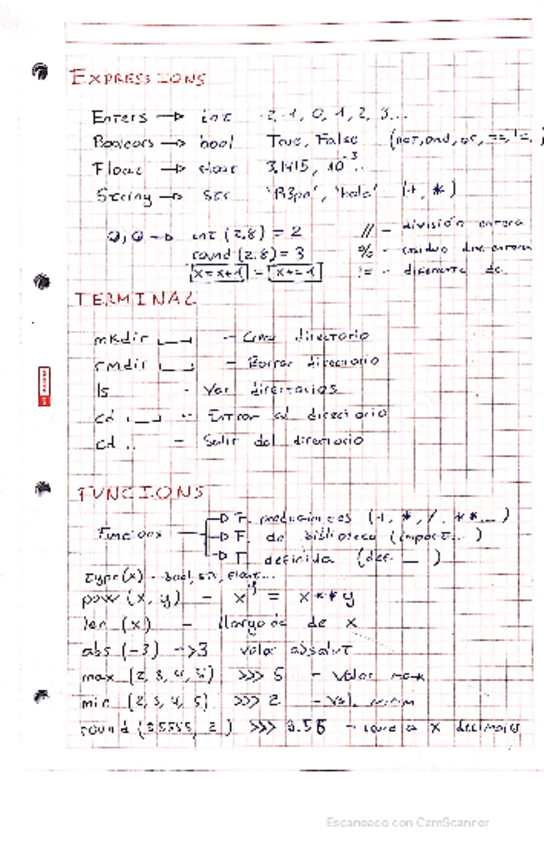 EXPRESSIONS
Enters → int -2, -1, 0, 1, 2, 3...
Booleans → bool True, False (not, and, or, ==, !=,
Float → float 3,1415, 10⁻³..
String → str 'B3pa', 'hola' (+, *)
→ int (2,8) = 2 // - división entera
round (2,8) = 3 % - residuo div. entera
x=x+1 = x+=1 != - diferente de
TERMINAL
mkdir ⎵ - Crear directorio
rmdir ⎵ - Borrar directorio
ls - Ver directorios
cd ⎵ - Entrar al directorio
cd .. - Salir del directorio
FUNCIONS
Funcions → F. (+, *, /, **...)
→ F. de biblioteca (import... )
→ F. definida (def __ )
type(x) - bool, str, float...
pow (x, y) - xʸ = x**y
len (x) - llargada de x
abs (-3) -> 3 valor absolut
max (2, 3, 4, 5) >>> 5 - Valor max
min (2, 3, 4, 5) >>> 2 - Val. minim
round (3.5555, 2) >>> 3.56 - x decimales
Escaneado con CamScanner